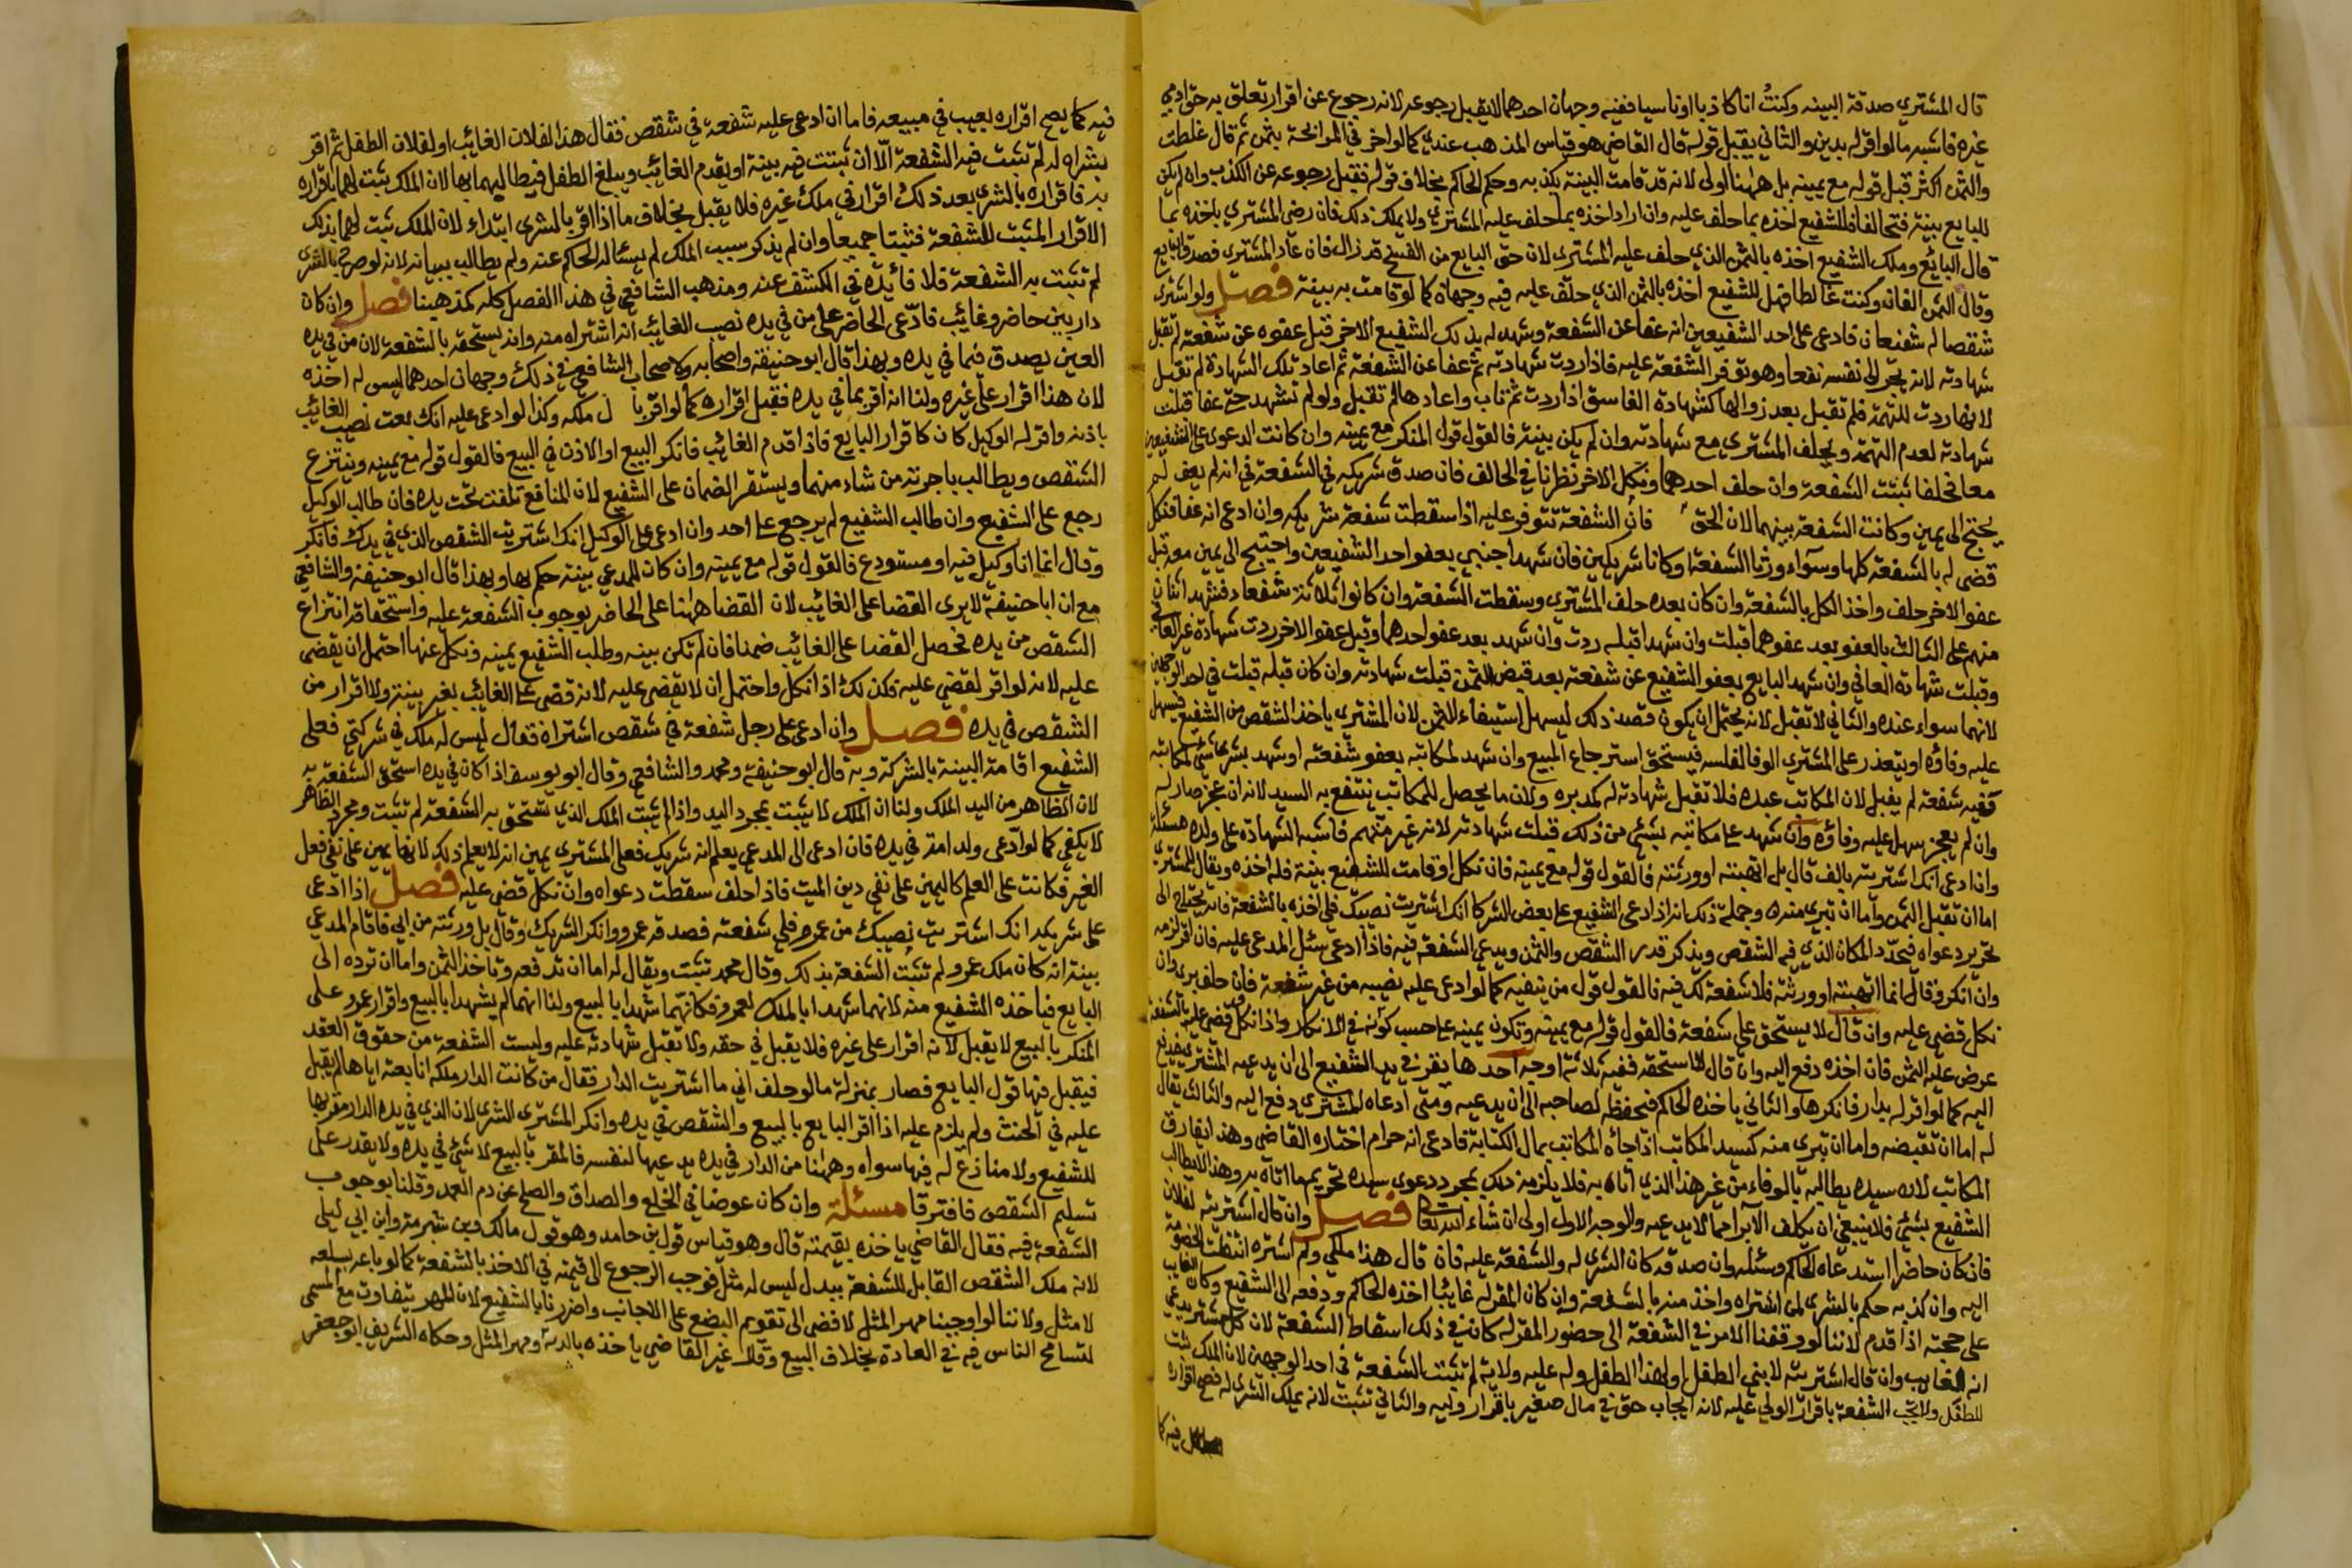 قال المشتري صدقة البينه وكنتُ انا كاذبا او ناسيا ففيه وجهان احدهما لا يقبل رجوعه لانه رجوع عن اقرار تعلق به حق ادمي
غيره فاشبه ما لو اقر له بدين والثاني يقبل قوله قال القاضي هو قياس المذهب عندي كما لو اخبر في المرابحة بثمن ثم قال غلطت
والثمن اكثر قبل قوله مع يمينه بل ههنا اولى لانه قد قامت البينة بكذبه وحكم الحاكم بخلاف قوله فقبل رجوعه عن الكذب وان لم يكن
للبايع بينة فتحالفا فللشفيع اخذه بما حلف عليه وان اراد اخذه بما حلف عليه المشتري ولا يملك ذلك فان رضي المشتري باخذه بما
قال البائع وملك الشفيع اخذه بالثمن الذي حلف عليه المشتري لان حق البايع من الفسخ قد زال فان عاد المشتري فصدق البايع
وقال الثمن الفان وكنت غالطا فهل للشفيع اخذه بالثمن الذي حلف عليه فيه وجهان كما لو قامت به بينة فصل ولو اشترى
شقصا له شفيعان فادعى على احد الشفيعين انه عفا عن الشفعة وشهد له بذلك الشفيع الاخر قبل عفوه عن شفعته لم تقبل
شهادته لانه يجر الى نفسه نفعا وهو توفر الشفعة عليه فاذا ردت شهادته ثم عفا عن الشفعة ثم اعاد تلك الشهادة لم تقبل
لانها ردت للتهمة فلم تقبل بعد زوالها كشهادة الفاسق اذا ردت ثم تاب واعادها لم تقبل ولو لم تشهد حتى عفا قبلت
شهادته لعدم التهمة ويحلف المشتري مع شهادته وان لم يكن بينة فالقول قول المنكر مع يمينه وان كانت الدعوى على الشفيعين
معا فحلفا ثبتت الشفعة وان حلف احدهما ونكل الاخر نظرنا في الحالف فان صدق شريكه في الشفعة في انه لم يعف لم
يحتج الى يمين وكانت الشفعة بينهما لان الحق فان الشفعة تتوفر عليه اذا سقطت شفعة شريكه وان ادعى انه عفا فنكل
قضى له بالشفعة كلها وسواء ورثا الشفعة او كانا شريكين فان شهد اجنبي بعفو احد الشفيعين واحتيج الى يمين معه قبل
عفو الاخر حلف واخذ الكل بالشفعة وان كان بعده حلف المشتري وسقطت الشفعة وان كانوا ثلاثة شفعاء فشهد اثنان
منهم على الثالث بالعفو بعد عفوهما قبلت وان شهدا قبله ردت وان شهد بعد عفو احدهما وقبل عفو الاخر ردت شهادة غير العافي
وقبلت شهادة العافي وان شهد البايع بعفو الشفيع عن شفعته بعد قبض الثمن قبلت شهادته وان كان قبله قبلت في احد الوجهين
لانهما سواء عنده والثاني لا تقبل لانه يحتمل ان يكون قصد ذلك ليسهل استيفاء الثمن لان المشتري ياخذ الشقص من الشفيع فيسهل
عليه وفاؤه او يتعذر على المشتري الوفا لفلسه فيستحق استرجاع المبيع وان شهد لمكاتبه بعفو شفعته او شهد بشرى شئ لمكاتبه
ففيه شفعة لم يقبل لان المكاتب عبده فلا تقبل شهادته له كمدبره ولان ما يحصل للمكاتب ينتفع به السيد لانه ان عجز صار له
وان لم يعجز سهل عليه وفاؤه وان شهد على مكاتبه بشئ من ذلك قبلت شهادته لانه غير متهم فاشبه الشهادة على ولده مسئلة
وان ادعى انك اشتريته بالف قال بل اتهبته او ورثته فالقول قوله مع يمينه فان نكل او قامت للشفيع بينة فله اخذه ويقال للمشتري
اما ان تقبل الثمن واما ان تبري منه وجملة ذلك انه اذا ادعى الشفيع على بعض الشركا انك اشتريت نصيبك فلي اخذه بالشفعة فانه يحتاج الى
تحرير دعواه فيحدد المكان الذي فيه الشقص ويذكر قدر الشقص والثمن ويدعي الشفعة فيه فاذا ادعى سئل المدعى عليه فان اقر لزمه
وان انكر وقال انما اتهبته او ورثته فلا شفعة لك فيه فالقول قول من ينفيه كما لو ادعى عليه نصيبه من غير شفعة فان حلف برى وان
نكل قضي عليه وان قال لا يستحق علي شفعة فالقول قوله مع يمينه وتكون يمينه على حسب قوله في الانكار واذا نكل وقضي عليه بالشفعة
عرض عليه الثمن فان اخذه دفع اليه وان قال لا استحقه ففيه ثلاثة اوجه احدها يقر في يد الشفيع الى ان يدعيه المشتري فيدفع
اليه كما لو اقر له بدار فانكرها والثاني ياخذه الحاكم فيحفظه لصاحبه الى ان يدعيه ومتى ادعاه المشتري دفع اليه والثالث يقال
له اما ان تقبضه واما ان تبري منه كسيد المكاتب اذا جاءه المكاتب بمال الكتابة فادعى انه حرام اختاره القاضي وهذا يفارق
المكاتب لان سيده يطالبه بالوفاء من غير هذا الذي اتاه به فلا يلزمه ذلك بمجرد دعوى سيده تحريم ما اتاه به وهذا لا يطالب
الشفيع بشئ فلا ينبغي ان يكلف الابراء مما لا يدعيه والوجه الاول اولى ان شاء الله تعالى فصل وان قال اشتريته لفلان
فان كان حاضرا استدعاه الحاكم وسئله وان صدقه كان الشرى له والشفعة عليه فان قال هذا ملكي ولم اشتره انتقلت الخصومة
اليه وان كذبه حكم بالشرى لمن اشتراه واخذ منه بالشفعة وان كان المقر له غائبا اخذه الحاكم ودفعه الى الشفيع وكان الغايب
على حجته اذا قدم لاننا لو وقفنا الامر في الشفعة الى حضور المقر له كان في ذلك اسقاط الشفعة لان كل مشتر يدعي
انه لغايب وان قال اشتريته لابني الطفل او لهذا الطفل وله عليه ولاية لم تثبت الشفعة في احد الوجهين لان الملك ثبت
للطفل ولا تجب الشفعة باقرار الولي عليه لانه ايجاب حق في مال صغير باقرار وليه والثاني تثبت لانه يملك الشرى له فصح اقراره
فيه كما
فيه كما يصح اقراره بعيب في مبيعه فاما ان ادعى عليه شفعة في شقص فقال هذا لفلان الغائب او لفلان الطفل ثم اقر
بشراه له لم تثبت فيه الشفعة الا ان ثبتت فيه بينة او يقدم الغائب ويبلغ الطفل فيطالبهما بها لان الملك ثبت لهما باقراره
به فاقراره بالشرى بعد ذلك اقرار في ملك غيره فلا يقبل بخلاف ما اذا اقر بالشرى ابتداء لان الملك ثبت لهما بذلك
الاقرار المثبت للشفعة فثبتا جميعا وان لم يذكر سبب الملك لم يسئله الحاكم عنه ولم يطالب ببيانه لانه لو صرح بالشرى
لم تثبت به الشفعة فلا فائدة في الكشف عنه ومذهب الشافعي في هذا الفصل كله كمذهبنا فصل وان كان
دار بين حاضر وغائب فادعى الحاضر على من في يده نصيب الغائب انه اشتراه منه وانه يستحقه بالشفعة لان من في يده
العين يصدق فيما في يده وبهذا قال ابو حنيفة واصحابه ولاصحاب الشافعي في ذلك وجهان احدهما ليس له اخذه
لان هذا اقرار على غيره ولنا انه اقر بما في يده فقبل اقراره كما لو اقر با ل ملكه وكذا لو ادعى عليه انك بعت نصيب الغائب
باذنه واقر له الوكيل كان كاقرار البايع فاذا قدم الغائب فانكر البيع او الاذن في البيع فالقول قوله مع يمينه وينتزع
الشقص ويطالب باجرته من شاء منهما ويستقر الضمان على الشفيع لان المنافع تلفت تحت يده فان طالب الوكيل
رجع على الشفيع وان طالب الشفيع لم يرجع على احد وان ادعى على الوكيل انك اشتريت الشقص الذي في يدك فانكر
وقال انما انا وكيل فيه او مستودع فالقول قوله مع يمينه وان كان للمدعي بينة حكم بها وبهذا قال ابو حنيفة والشافعي
مع ان ابا حنيفة لا يرى القضا على الغائب لان القضا ههنا على الحاضر بوجوب الشفعة عليه واستحقاقه انتزاع
الشقص من يده فحصل القضا على الغائب ضمنا فان لم تكن بينه وطلب الشفيع يمينه ونكل عنها احتمل ان يقضى
عليه لانه لو اقر لقضي عليه فكذلك اذا نكل واحتمل ان لا يقضى عليه لانه قضى على الغائب بغير بينة ولا اقرار من
الشقص في يده فصل وان ادعى على رجل شفعة في شقص اشتراه فقال ليس له ملك في شركتي فعلى
الشفيع اقامة البينة بالشركة وبه قال ابو حنيفة ومحمد والشافعي وقال ابو يوسف اذا كان في يده استحق الشفعة به
لان الظاهر من اليد الملك ولنا ان الملك لا يثبت بمجرد اليد واذا لم يثبت الملك الذي يستحق به الشفعة لم تثبت ومجرد الظاهر
لا يكفي كما لو ادعى ولد امة في يده فان ادعى الى المدعي يعلم انه شريك فعلى المشتري يمين انه لا يعلم ذلك لانها يمين على نفي فعل
الغير فكانت على العلم كاليمين على نفي دين الميت فاذا حلف سقطت دعواه وان نكل قضي عليه فصل اذا ادعى
على شريكه انك اشتريت نصيبك من عمرو فلي شفعته فصدقه عمرو وانكر الشريك وقال بل ورثته من ابي فاقام المدعي
بينة انه كان ملك عمرو لم تثبت الشفعة بذلك وقال محمد تثبت ويقال له اما ان تدفعه وتاخذ الثمن واما ان ترده الى
البايع فياخذه الشفيع منه لانهما شهدا بالملك لعمرو فكانهما شهدا بالبيع ولنا انهما لم يشهدا بالبيع واقرار عمرو على
المنكر بالبيع لا يقبل لانه اقرار على غيره فلا يقبل في حقه ولا تقبل شهادته عليه وليست الشفعة من حقوق العقد
فيقبل فيها قول البايع فصار بمنزلة ما لو حلف اني ما اشتريت الدار فقال من كانت الدار ملكه انا بعته اياها لم يقبل
عليه في الحنث ولم يلزم عليه اذا اقر البايع بالبيع والشقص في يده وانكر المشتري الشرى لان الذي في يده الدار مقر بها
للشفيع ولا منازع له فيها سواه وههنا من الدار في يده يدعيها لنفسه فالمقر بالبيع لا شئ في يده ولا يقدر على
تسليم الشقص فافترقا مسئلة وان كان عوضا في الخلع والصداق والصلح عن دم العمد وقلنا بوجوب
الشفعة فيه فقال القاضي ياخذه بقيمته قال وهو قياس قول بن حامد وهو قول مالك وبن شبرمة وابن ابي ليلى
لانه ملك الشقص القابل للشفعة ببدل ليس له مثل فوجب الرجوع الى قيمته في الاخذ بالشفعة كما لو باعه بسلعة
لا مثل ولاننا لو اوجبنا مهر المثل لافضى الى تقويم البضع على الاجانب واضررنا بالشفيع لان المهر يتفاوت مع المسمى
لتسامح الناس فيه في العادة بخلاف البيع وقال غير القاضي ياخذه بالدية ومهر المثل وحكاه الشريف ابو جعفر